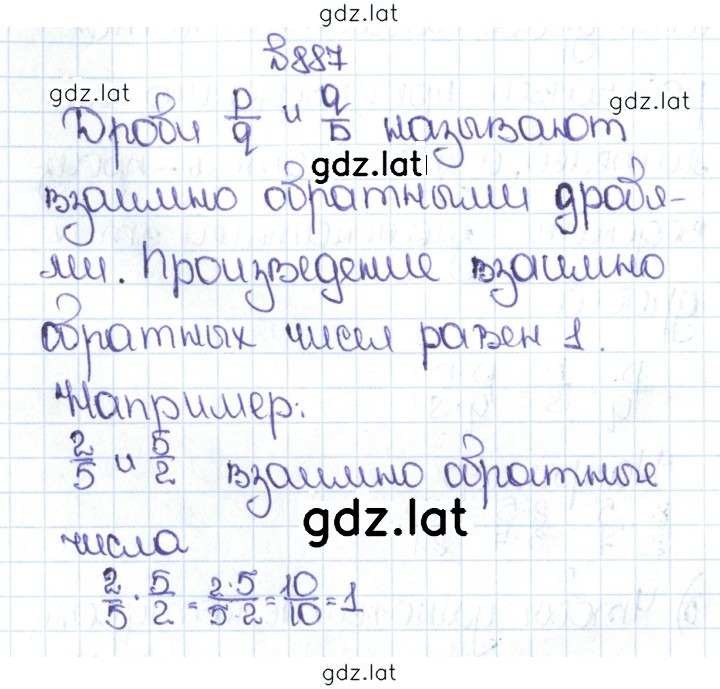 gdz.lat
№887
gdz.lat gdz.lat
Дроби p/q и q/p называют
gdz.lat
взаимно обратными дробя-
ми. Произведение взаимно
обратных чисел равен 1.
Например:
2/5 и 5/2 взаимно обратные
gdz.lat
числа
2/5 · 5/2 = 2·5/5·2 = 10/10 = 1
gdz.lat